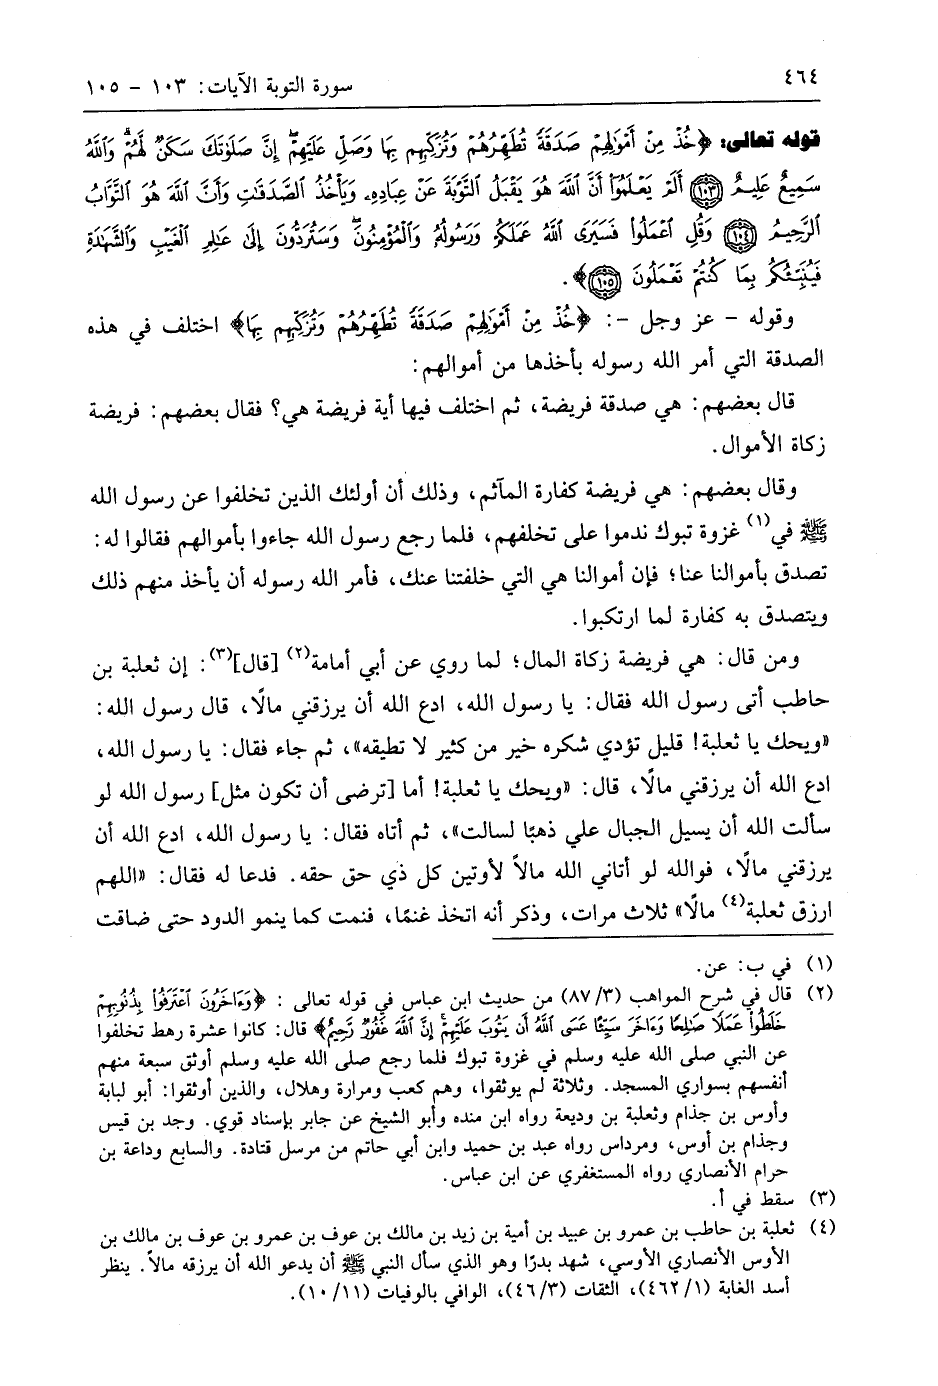 ٤٦٤
سورة التوبة الآيات: ١٠٣ - ١٠٥
قوله تعالى: ﴿خُذْ مِنْ أَمْوَٰلِهِمْ صَدَقَةً تُطَهِّرُهُمْ وَتُزَكِّيهِم بِهَا وَصَلِّ عَلَيْهِمْ إِنَّ صَلَوٰتَكَ سَكَنٌ لَهُمْ وَاللَّهُ
سَمِيعٌ عَلِيمٌ ﴿١٠٣﴾ أَلَمْ يَعْلَمُوا أَنَّ اللَّهَ هُوَ يَقْبَلُ التَّوْبَةَ عَنْ عِبَادِهِۦ وَيَأْخُذُ الصَّدَقَٰتِ وَأَنَّ اللَّهَ هُوَ التَّوَّابُ
الرَّحِيمُ ﴿١٠٤﴾ وَقُلِ اعْمَلُوا فَسَيَرَى اللَّهُ عَمَلَكُمْ وَرَسُولُهُ وَالْمُؤْمِنُونَ وَسَتُرَدُّونَ إِلَىٰ عَٰلِمِ الْغَيْبِ وَالشَّهَٰدَةِ
فَيُنَبِّئُكُم بِمَا كُنتُمْ تَعْمَلُونَ ﴿١٠٥﴾﴾.
وقوله - عز وجل -: ﴿خُذْ مِنْ أَمْوَٰلِهِمْ صَدَقَةً تُطَهِّرُهُمْ وَتُزَكِّيهِم بِهَا﴾ اختلف في هذه
الصدقة التي أمر الله رسوله بأخذها من أموالهم:
قال بعضهم: هي صدقة فريضة، ثم اختلف فيها أية فريضة هي؟ فقال بعضهم: فريضة
زكاة الأموال.
وقال بعضهم: هي فريضة كفارة المآثم، وذلك أن أولئك الذين تخلفوا عن رسول الله
ﷺ في(١) غزوة تبوك ندموا على تخلفهم، فلما رجع رسول الله جاءوا بأموالهم فقالوا له:
تصدق بأموالنا عنا؛ فإن أموالنا هي التي خلفتنا عنك، فأمر الله رسوله أن يأخذ منهم ذلك
ويتصدق به كفارة لما ارتكبوا.
ومن قال: هي فريضة زكاة المال؛ لما روي عن أبي أمامة(٢) [قال](٣): إن ثعلبة بن
حاطب أتى رسول الله فقال: يا رسول الله، ادع الله أن يرزقني مالًا، قال رسول الله:
«ويحك يا ثعلبة! قليل تؤدي شكره خير من كثير لا تطيقه»، ثم جاء فقال: يا رسول الله،
ادع الله أن يرزقني مالًا، قال: «ويحك يا ثعلبة! أما [ترضى أن تكون مثل] رسول الله لو
سألت الله أن يسيل الجبال علي ذهبًا لسالت»، ثم أتاه فقال: يا رسول الله، ادع الله أن
يرزقني مالًا، فوالله لو أتاني الله مالاً لأوتين كل ذي حق حقه. فدعا له فقال: «اللهم
ارزق ثعلبة(٤) مالًا» ثلاث مرات، وذكر أنه اتخذ غنمًا، فنمت كما ينمو الدود حتى ضاقت
(١) في ب: عن.
(٢) قال في شرح المواهب (٨٧/٣) من حديث ابن عباس في قوله تعالى : ﴿وَءَاخَرُونَ اعْتَرَفُوا بِذُنُوبِهِمْ
خَلَطُوا عَمَلًا صَٰلِحًا وَءَاخَرَ سَيِّئًا عَسَى اللَّهُ أَن يَتُوبَ عَلَيْهِمْ إِنَّ اللَّهَ غَفُورٌ رَّحِيمٌ﴾ قال: كانوا عشرة رهط تخلفوا
عن النبي صلى الله عليه وسلم في غزوة تبوك فلما رجع صلى الله عليه وسلم أوثق سبعة منهم
أنفسهم بسواري المسجد. وثلاثة لم يوثقوا، وهم كعب ومرارة وهلال، والذين أوثقوا: أبو لبابة
وأوس بن جذام وثعلبة بن وديعة رواه ابن منده وأبو الشيخ عن جابر بإسناد قوي. وجد بن قيس
وجذام بن أوس، ومرداس رواه عبد بن حميد وابن أبي حاتم من مرسل قتادة. والسابع وداعة بن
حرام الأنصاري رواه المستغفري عن ابن عباس.
(٣) سقط في أ.
(٤) ثعلبة بن حاطب بن عمرو بن عبيد بن أمية بن زيد بن مالك بن عوف بن عمرو بن عوف بن مالك بن
الأوس الأنصاري الأوسي، شهد بدرًا وهو الذي سأل النبي ﷺ أن يدعو الله أن يرزقه مالاً. ينظر
أسد الغابة (٤٦٢/١)، الثقات (٤٦/٣)، الوافي بالوفيات (١٠/١١).